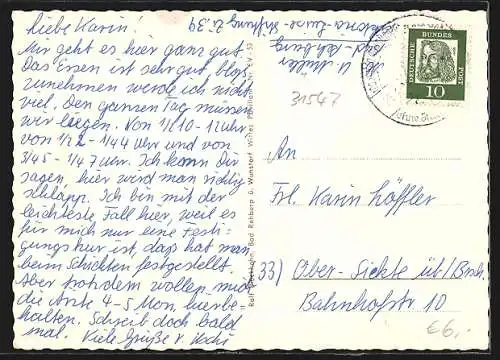 Liebe Karin!
Mir geht es hier ganz gut.
Das Essen ist sehr gut, bloß
zunehmen werde ich nicht
viel. Den ganzen Tag müssen
wir liegen. Von 1/2 10-12 Uhr
von 1/2 2 - 1/4 4 Uhr und von
3/4 5 - 1/4 7 Uhr. Ich kann Dir
sagen, hier wird man richtig
schlapp. Ich bin mit der
leichteste Fall hier, weil es
für mich nur eine Festi-
gungskur ist, daß hat man
beim Schichten festgestellt.
Aber trotzdem wollen mich
die Ärzte 4-5 Mon. hierbe-
halten. Schreib doch bald
mal. Viele Grüße v. Uschi
U. Müller
-Luise-Stiftung Zi. 39
DEUTSCHE BUNDESPOST
10
1961
31547
An
Frl. Karin Höffler
33) Ober-Sickte üb/Brsch.
Bahnhofstr 10
€6,-